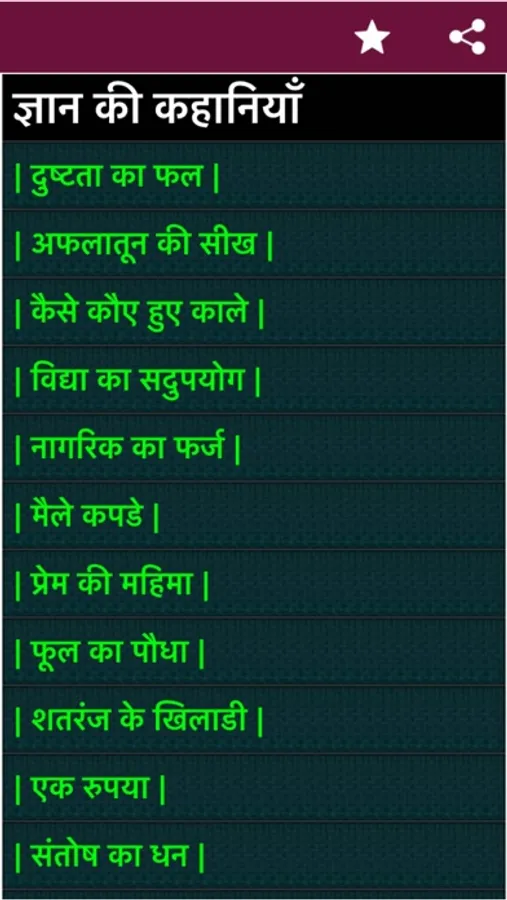 ज्ञान की कहानियाँ
| दुष्टता का फल |
| अफलातून की सीख |
| कैसे कौए हुए काले |
| विद्या का सदुपयोग |
| नागरिक का फर्ज |
| मैले कपडे |
| प्रेम की महिमा |
| फूल का पौधा |
| शतरंज के खिलाडी |
| एक रुपया |
| संतोष का धन |